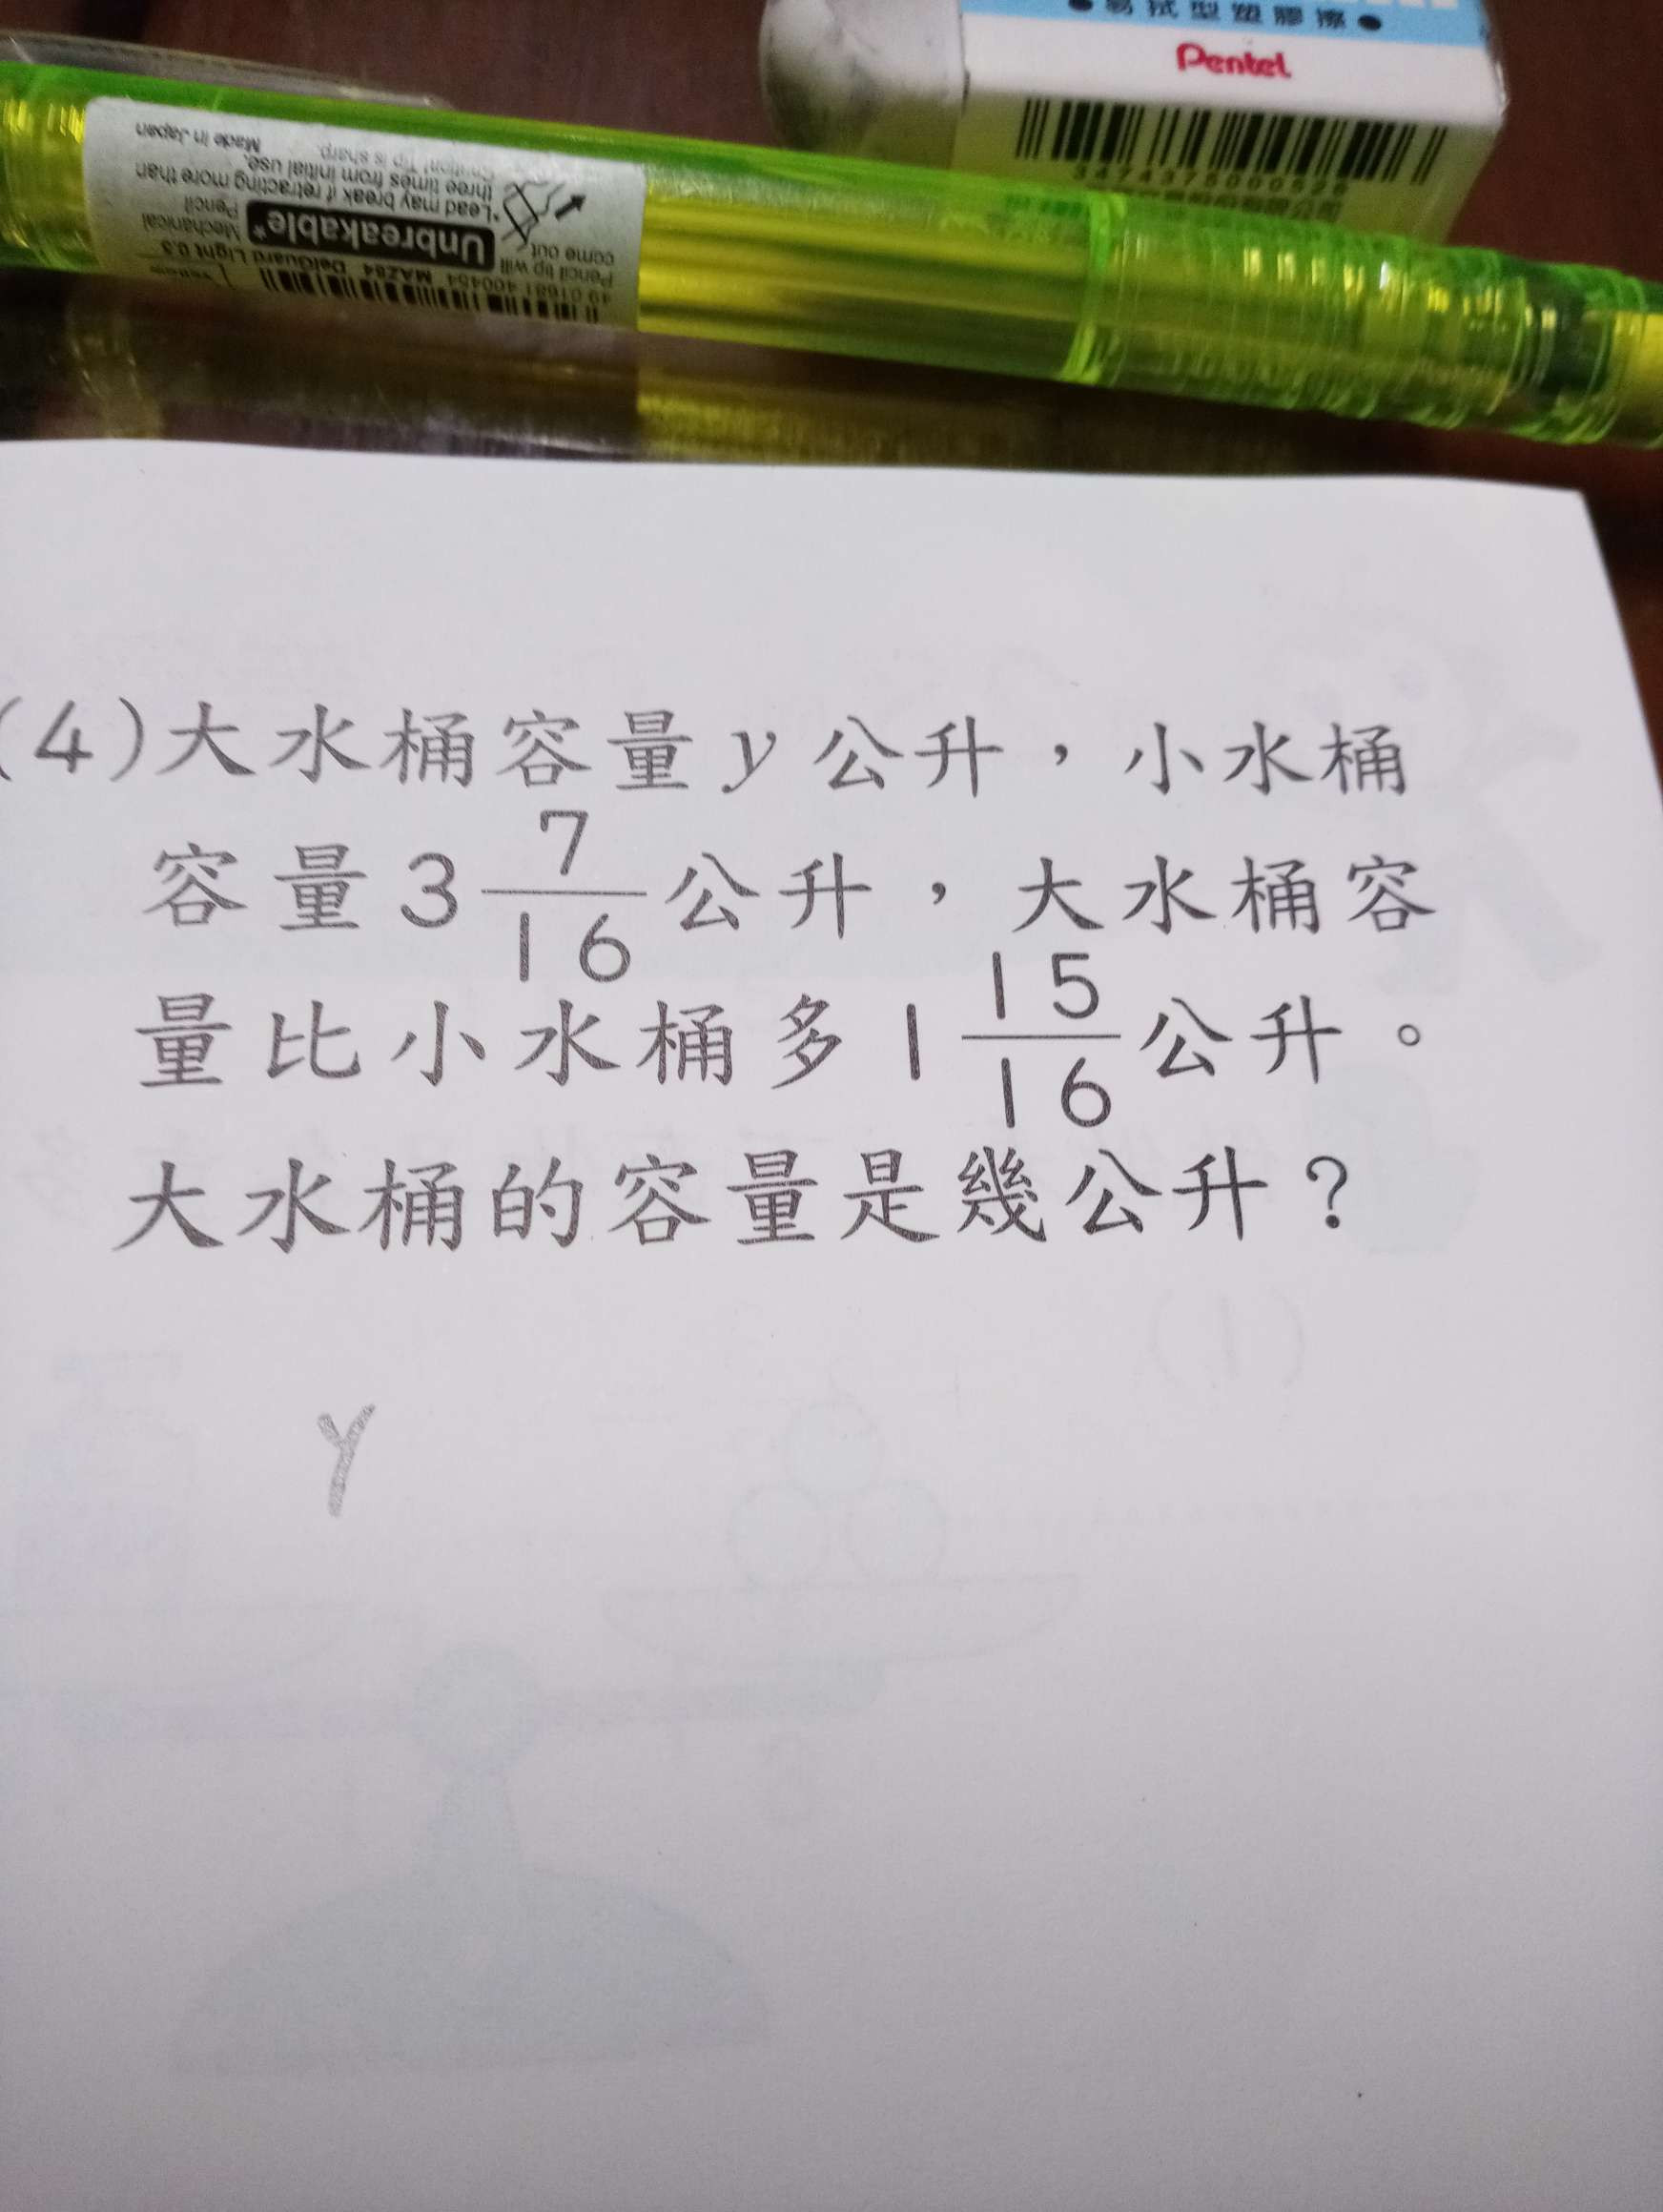 ●易拭型塑膠擦●
Pentel
3474375000526
Made in Japan
Caution! Tip is sharp.
three times from initial use.
*Lead may break if retracting more than
Unbreakable*
Mechanical
Pencil
come out
Pencil tip will
MAZ84 DelGuard Light 0.5
49 01681 400454
(4)大水桶容量y公升，小水桶
容量3 7/16公升，大水桶容
量比小水桶多1 15/16公升。
大水桶的容量是幾公升？
y
(1)